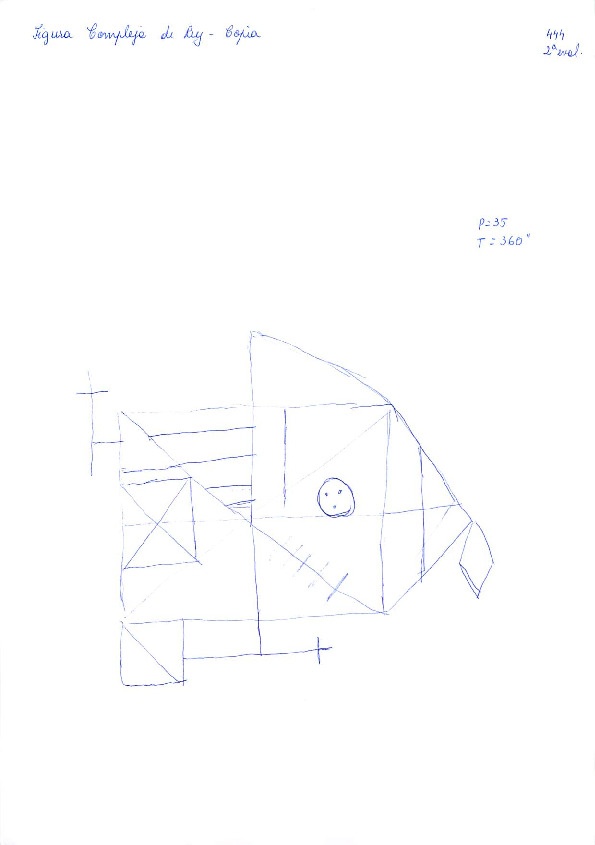 Figura Compleja de Rey - Copia
444
2ª eval.
P=35
T=360"